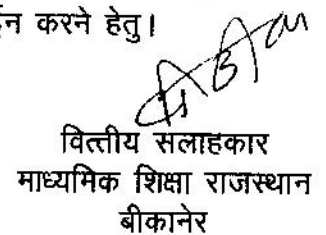 करने हेतु।
वित्तीय सलाहकार
माध्यमिक शिक्षा राजस्थान
बीकानेर